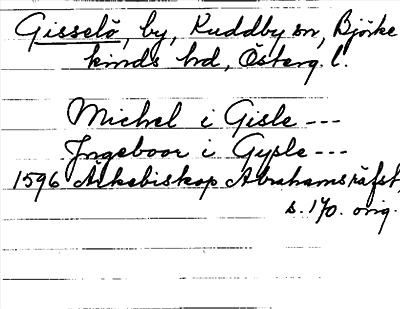 Gisselö, by, Kuddby sn, Björke
kinds hd, Österg. l.
Michel i Gisle ---
Jngeboor i Gysle ---
1596 Ärkebiskop Abrahams räfst,
s. 170. orig.